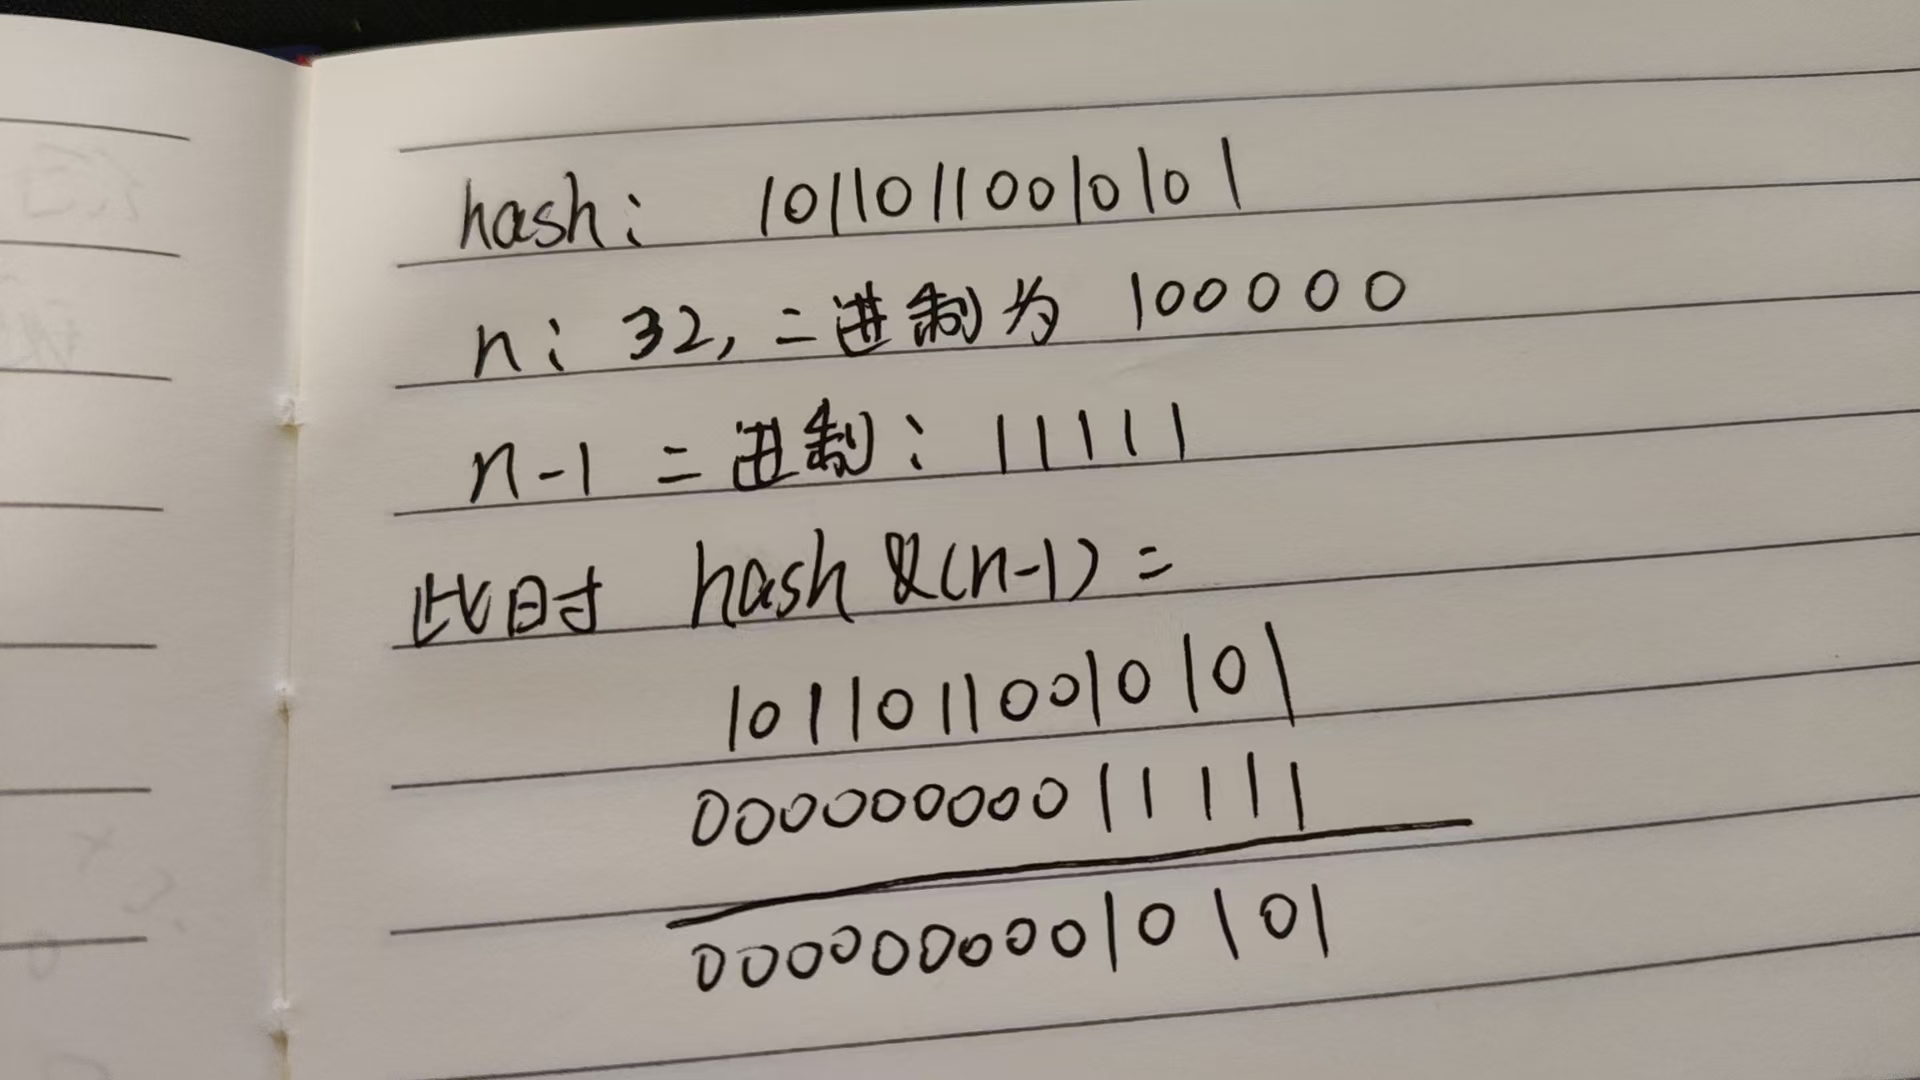 hash: 10110110010101
n: 32, 二进制为 100000
n-1 二进制: 11111
此时 hash &(n-1) =
10110110010101
00000000011111
00000000010101